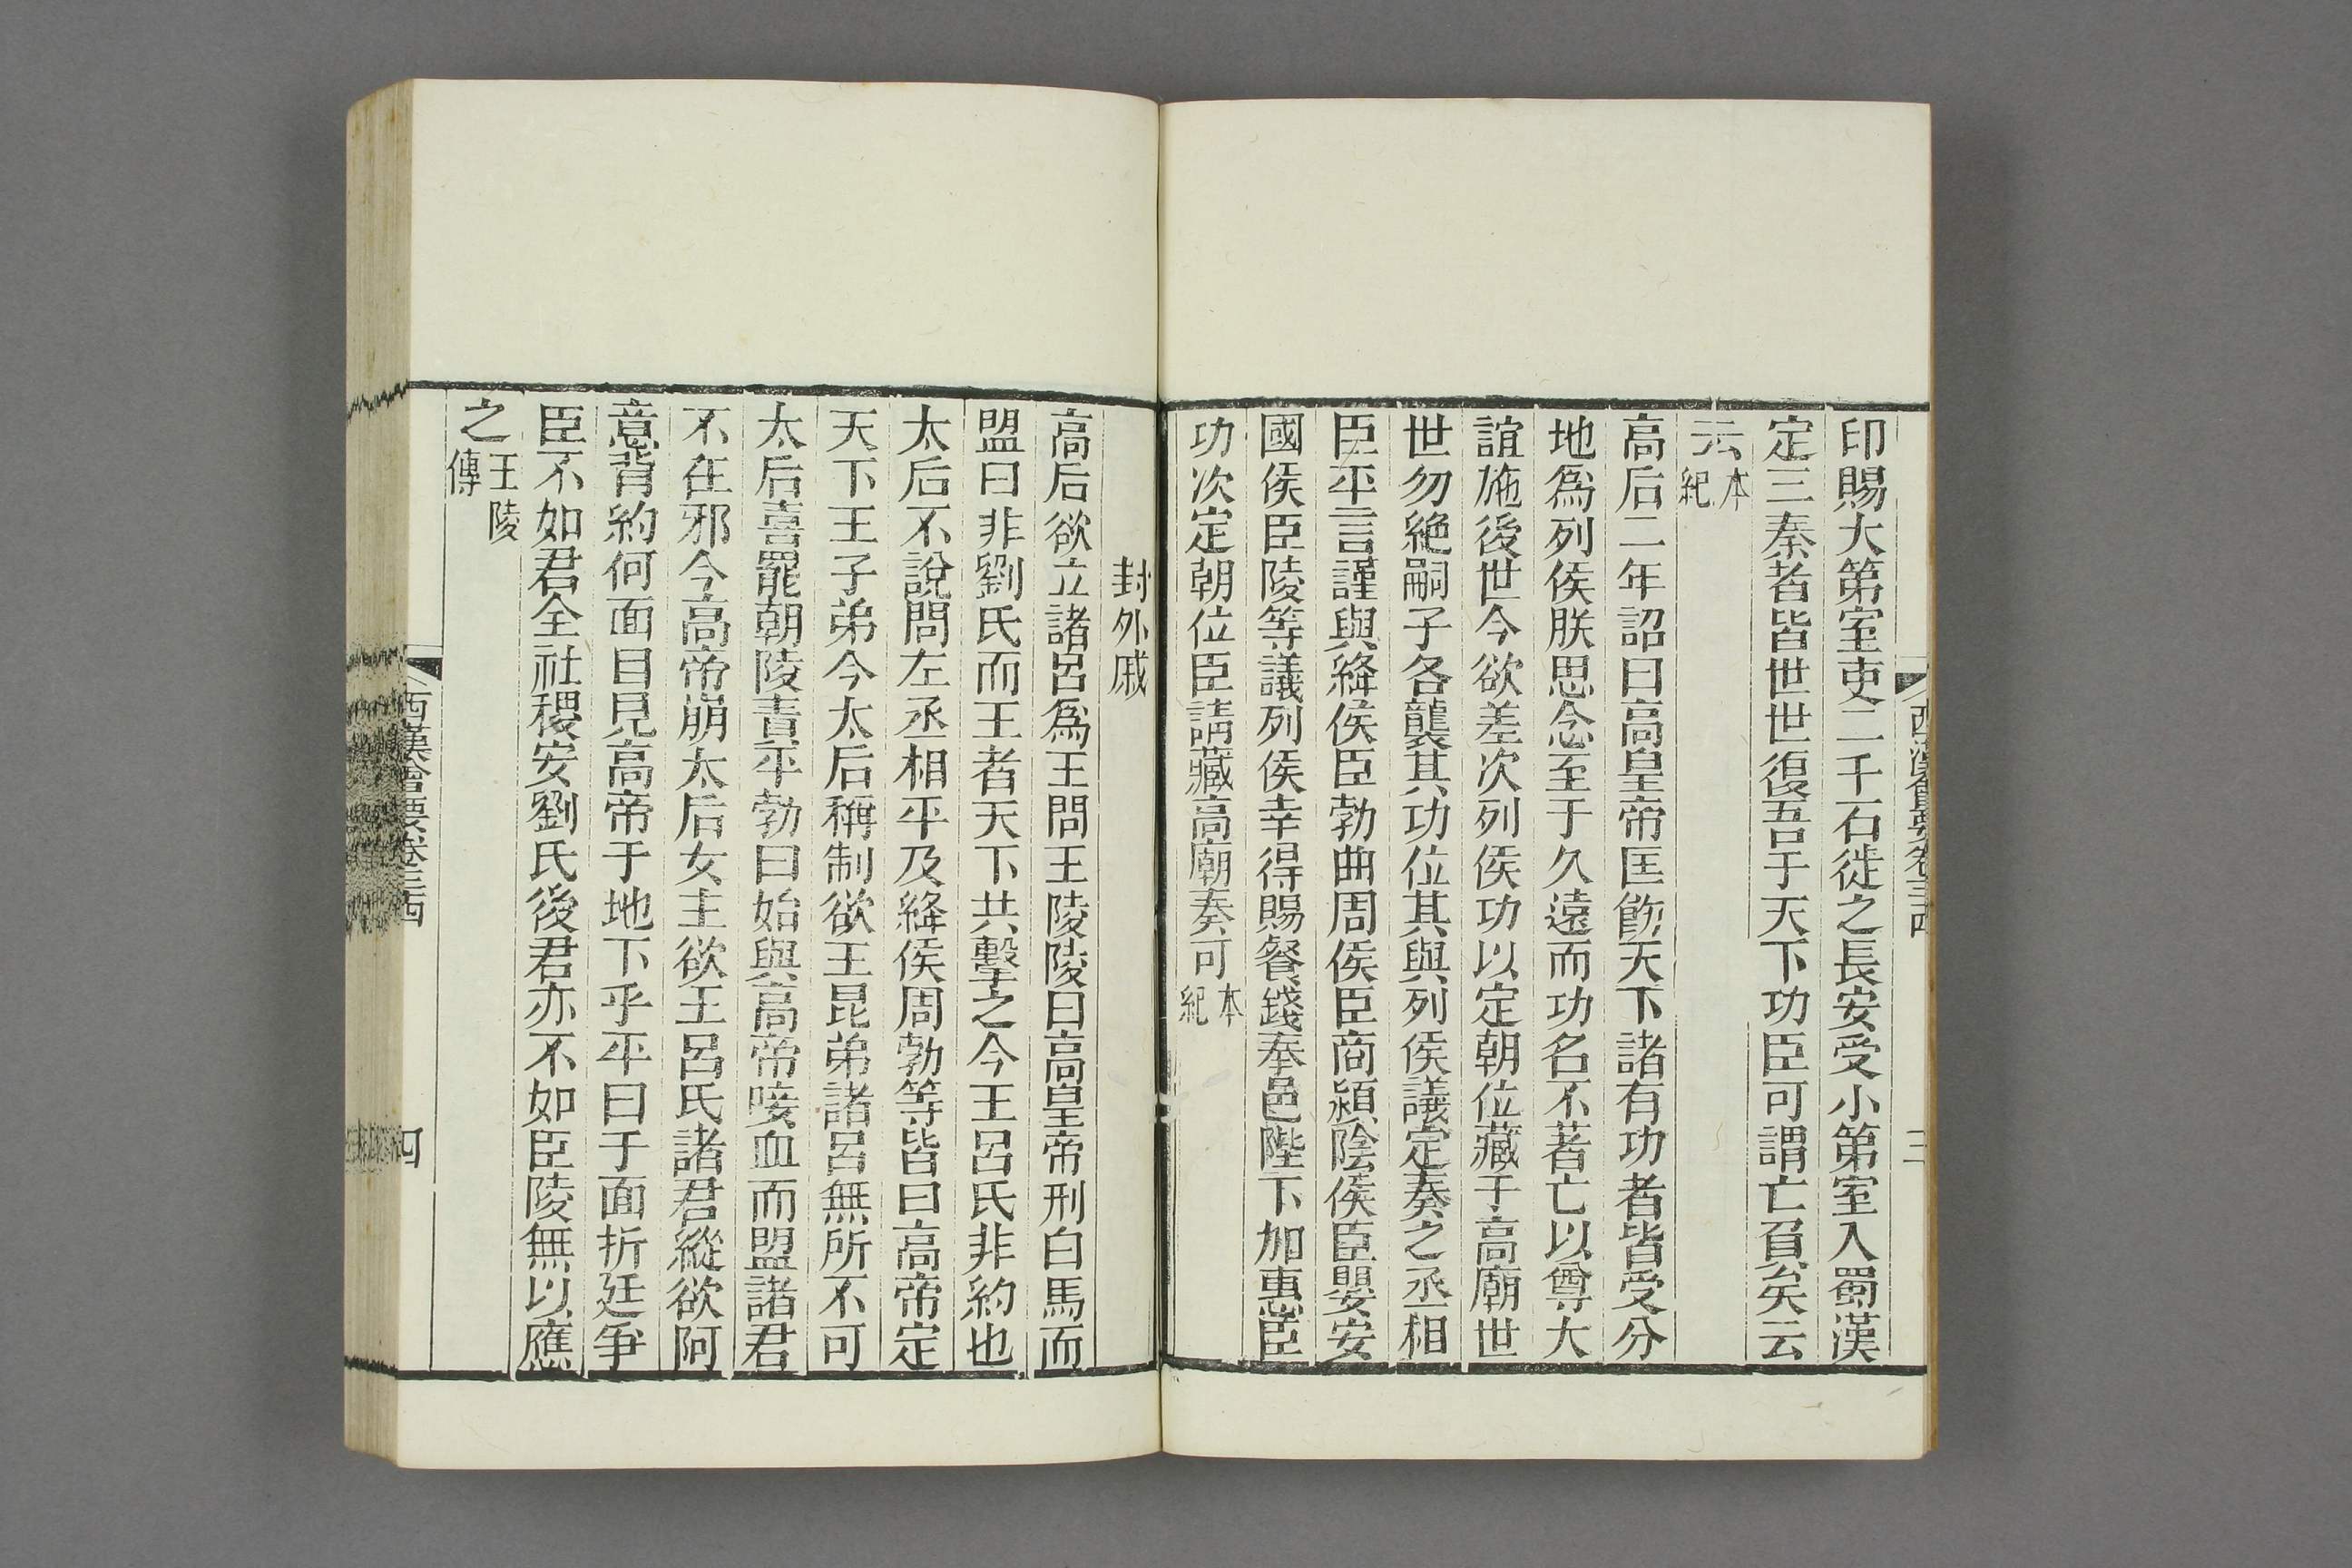 西漢會要卷三四
三
印賜大第室吏二千石徙之長安受小第室入蜀漢
定三秦者皆世世復吾于天下功臣可謂亡負矣云
云本紀
高后二年詔曰高皇帝匡飭天下諸有功者皆受分
地爲列侯朕思念至于久遠而功名不著亡以尊大
誼施後世今欲差次列侯功以定朝位藏于高廟世
世勿絶嗣子各襲其功位其與列侯議定奏之丞相
臣平言謹與絳侯臣勃曲周侯臣商潁陰侯臣嬰安
國侯臣陵等議列侯幸得賜餐錢奉邑陛下加惠臣
功次定朝位臣請藏高廟奏可本紀
封外戚
高后欲立諸呂爲王問王陵陵曰高皇帝刑白馬而
盟曰非劉氏而王者天下共擊之今王呂氏非約也
太后不說問左丞相平及絳侯周勃等皆曰高帝定
天下王子弟今太后稱制欲王昆弟諸呂無所不可
太后喜罷朝陵責平勃曰始與高帝唼血而盟諸君
不在邪今高帝崩太后女主欲王呂氏諸君縱欲阿
意背約何面目見高帝于地下乎平曰于面折廷爭
臣不如君全社稷安劉氏後君亦不如臣陵無以應
之王陵傳
西漢會要卷三四
四